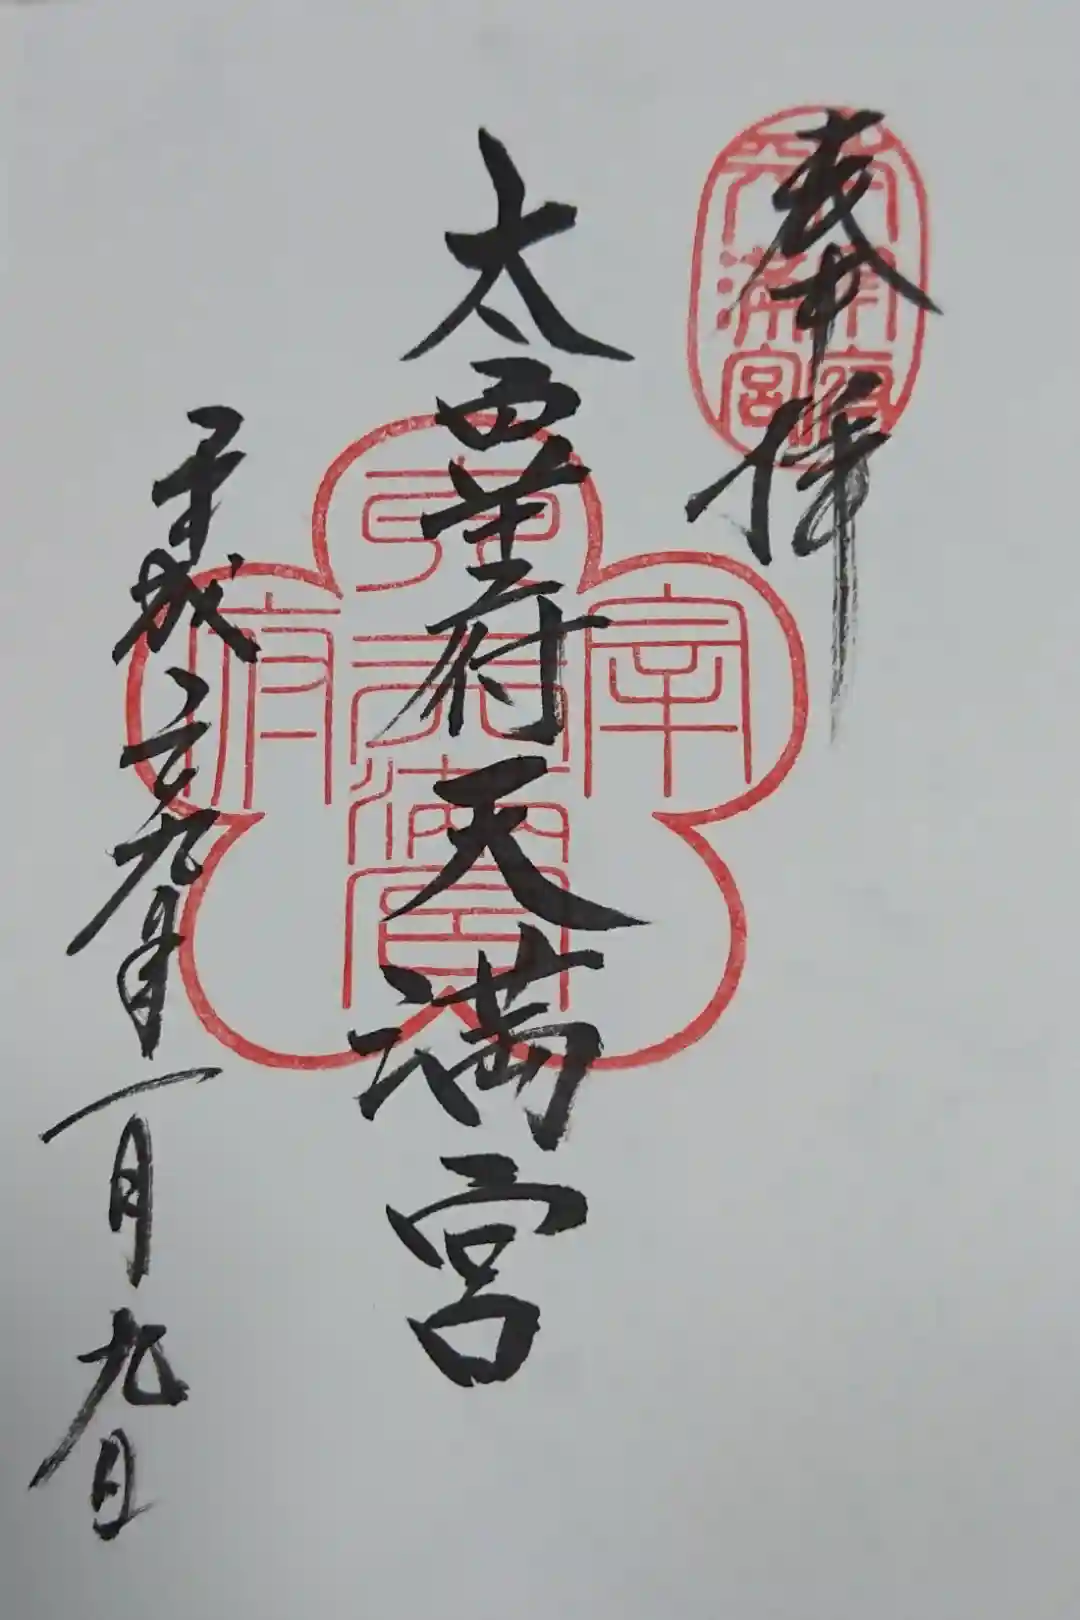 奉拝
太宰府天満宮
平成二九年一月九日
太宰府
天満宮